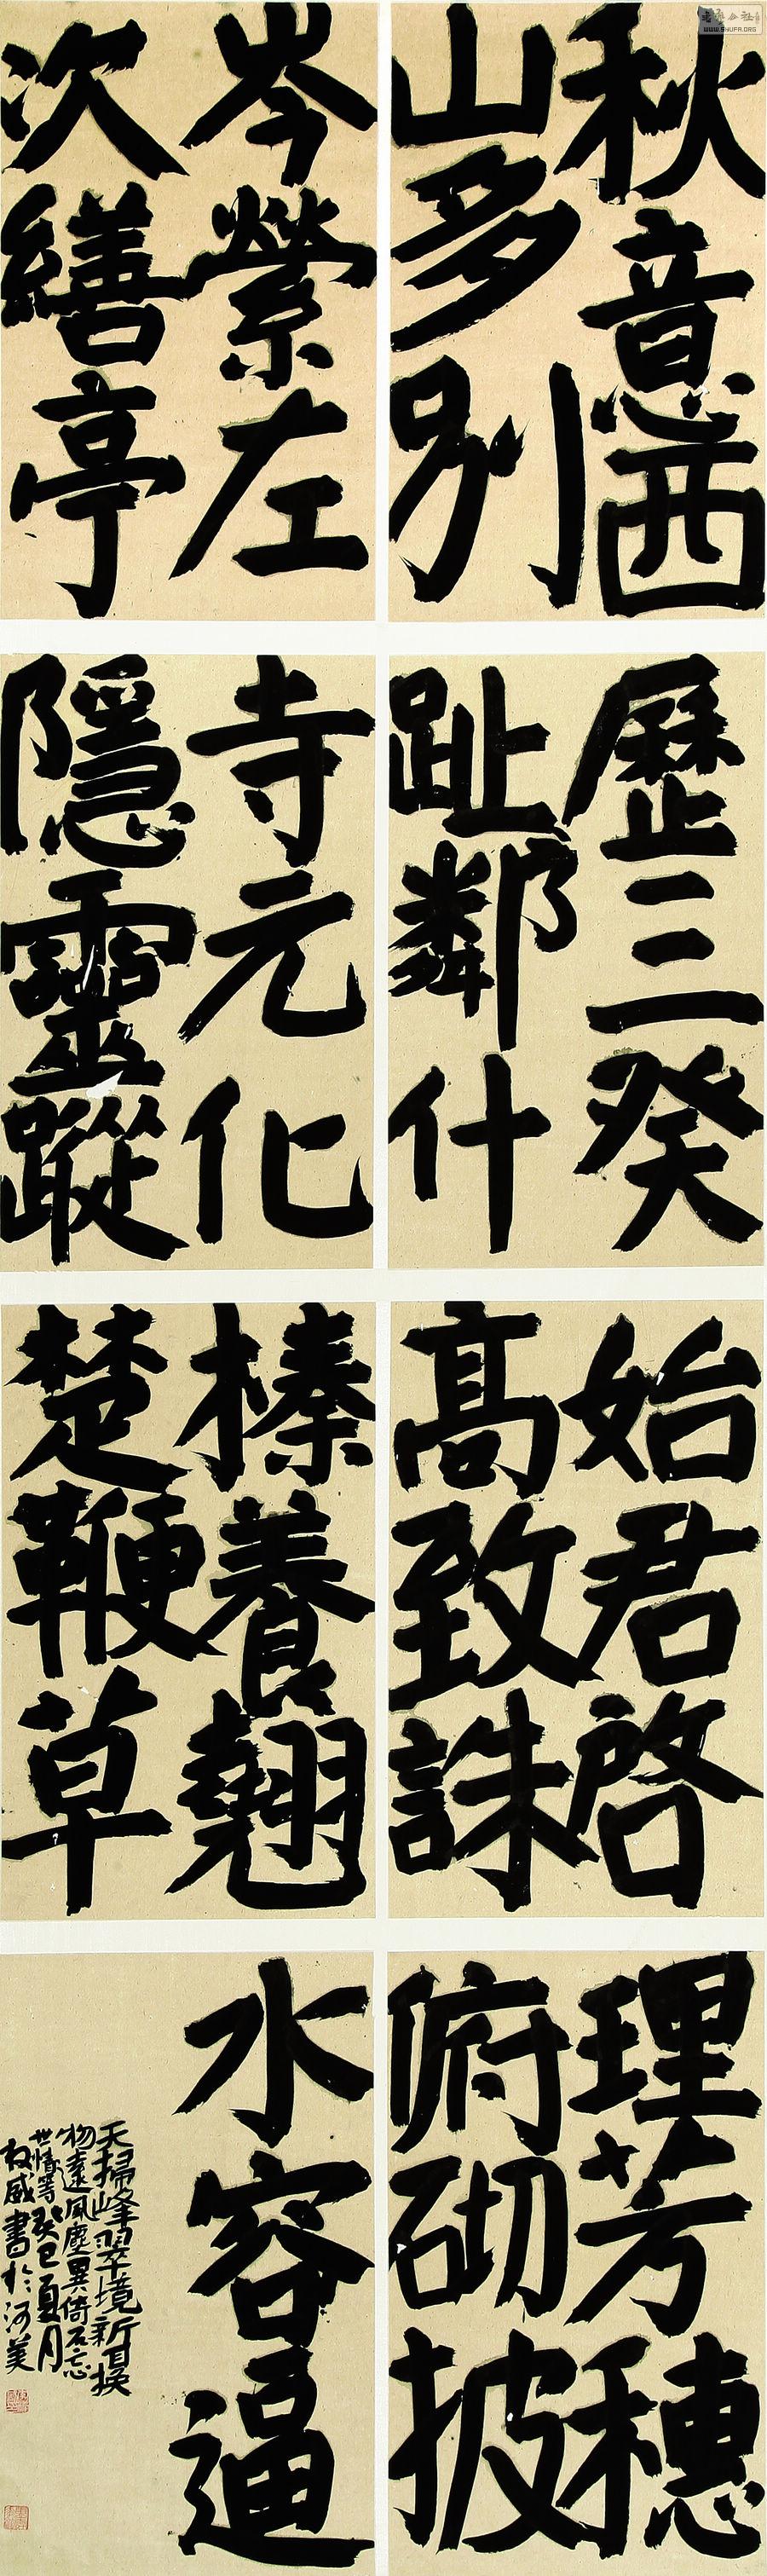 秋意西
山多别
岑縈左
次繕亭
歷三癸
趾鄰什
寺元化
隱靈蹤
始君啓
高致誅
榛養翹
楚鞭草
理芳穗
俯砌披
水容逼
天掃峰翠境新耳換
物遠風塵異倚石忘
世情等癸巳夏月
威書於河美
WWW.SHUFA.ORG